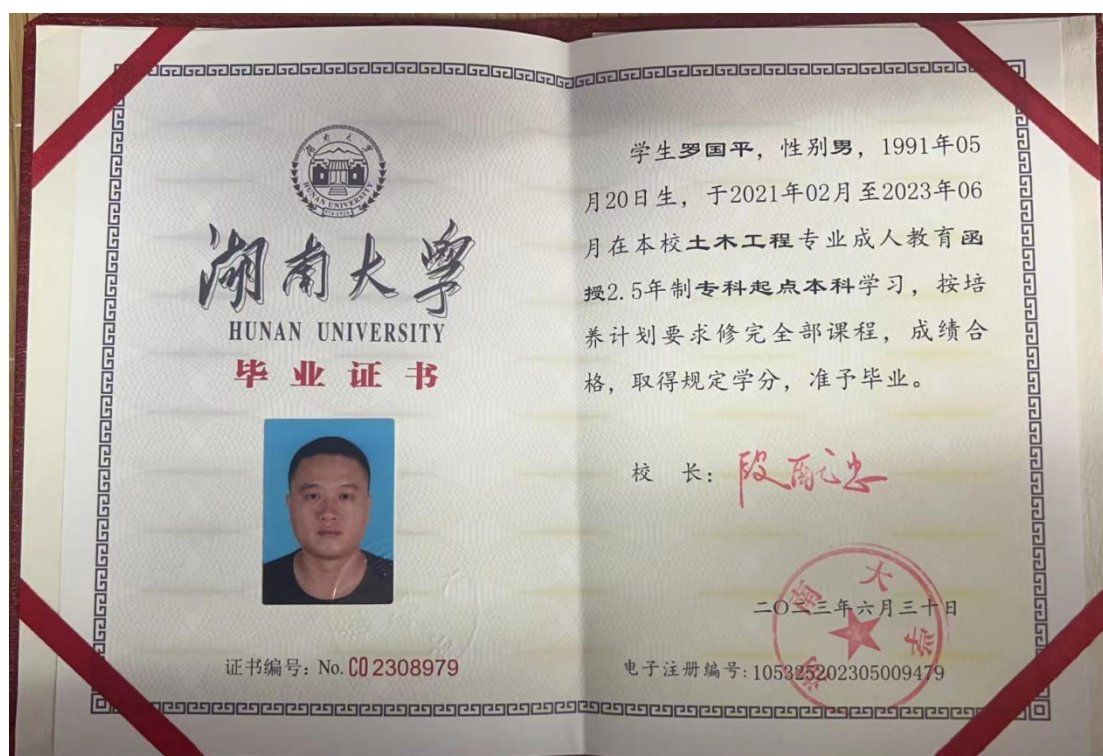 湖南大学
HUNAN UNIVERSITY
湖南大学
HUNAN UNIVERSITY
毕业证书
证书编号：No. CO 2308979
学生罗国平，性别男，1991年05
月20日生，于2021年02月至2023年06
月在本校土木工程专业成人教育函
授2.5年制专科起点本科学习，按培
养计划要求修完全部课程，成绩合
格，取得规定学分，准予毕业。
校 长：段献忠
湖南大学
二〇二三年六月三十日
电子注册编号：105325202305009479